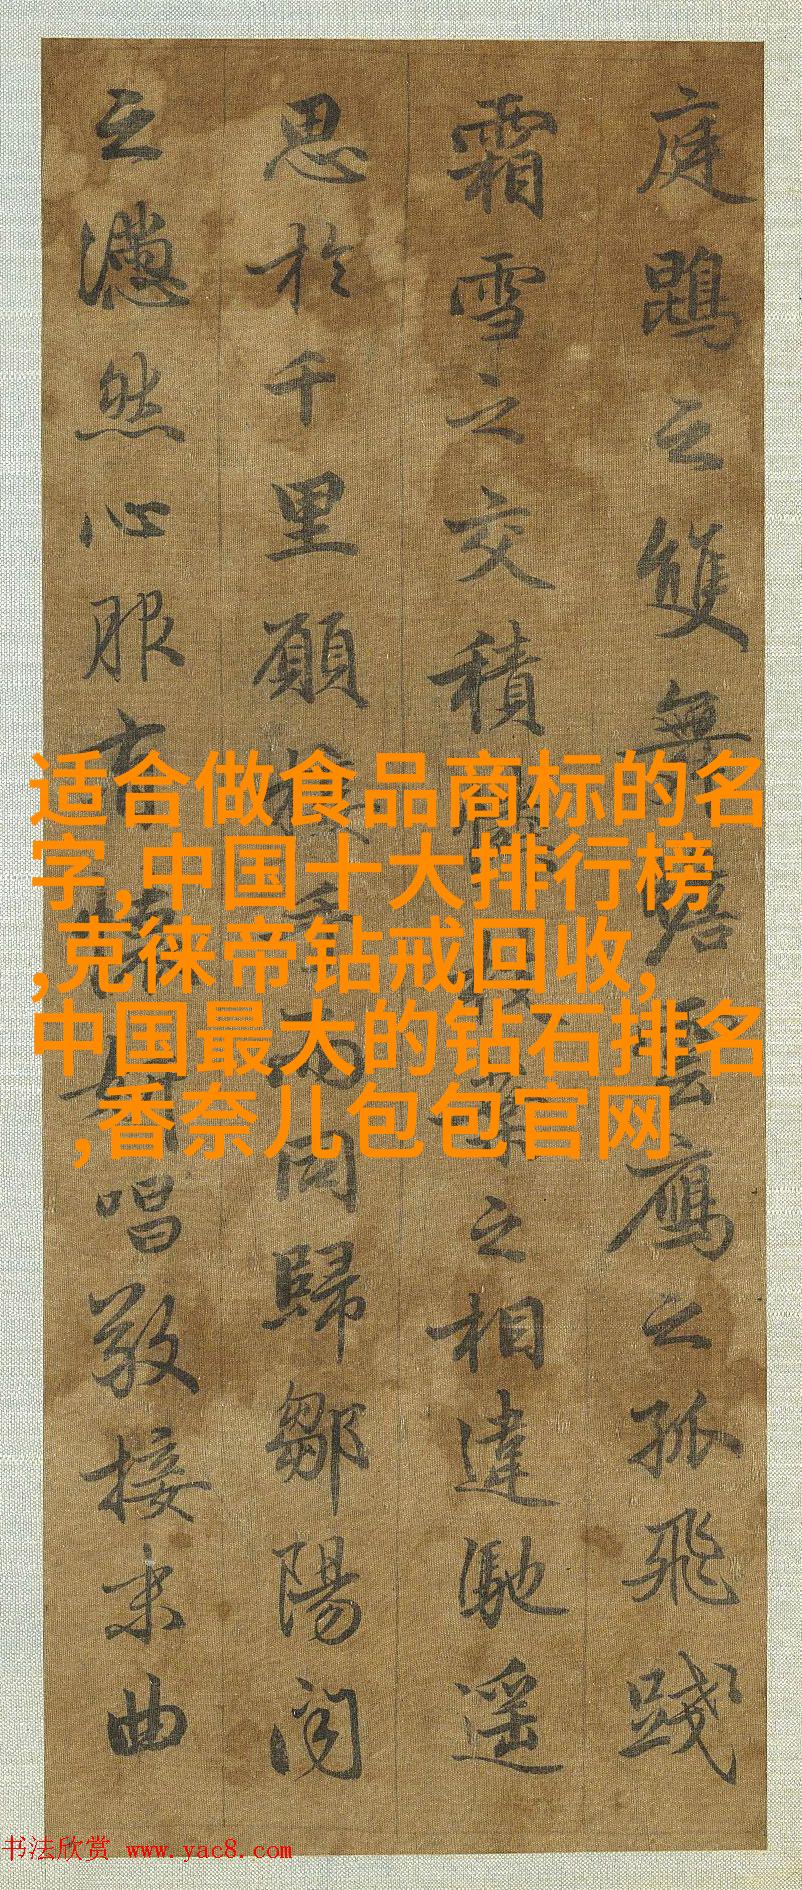 庭鵾之雙舞瞻雲鴈之孤飛踐
霜雪之交積憐枝葉之相違馳遥
思於千里願接手而同歸鄒陽聞
之懣然心服有懷妍唱敬接末曲
适合做食品商标的名
字,中国十大排行榜
,克徕帝钻戒回收,
中国最大的钻石排名
,香奈儿包包官网
书法欣赏 www.yac8.com